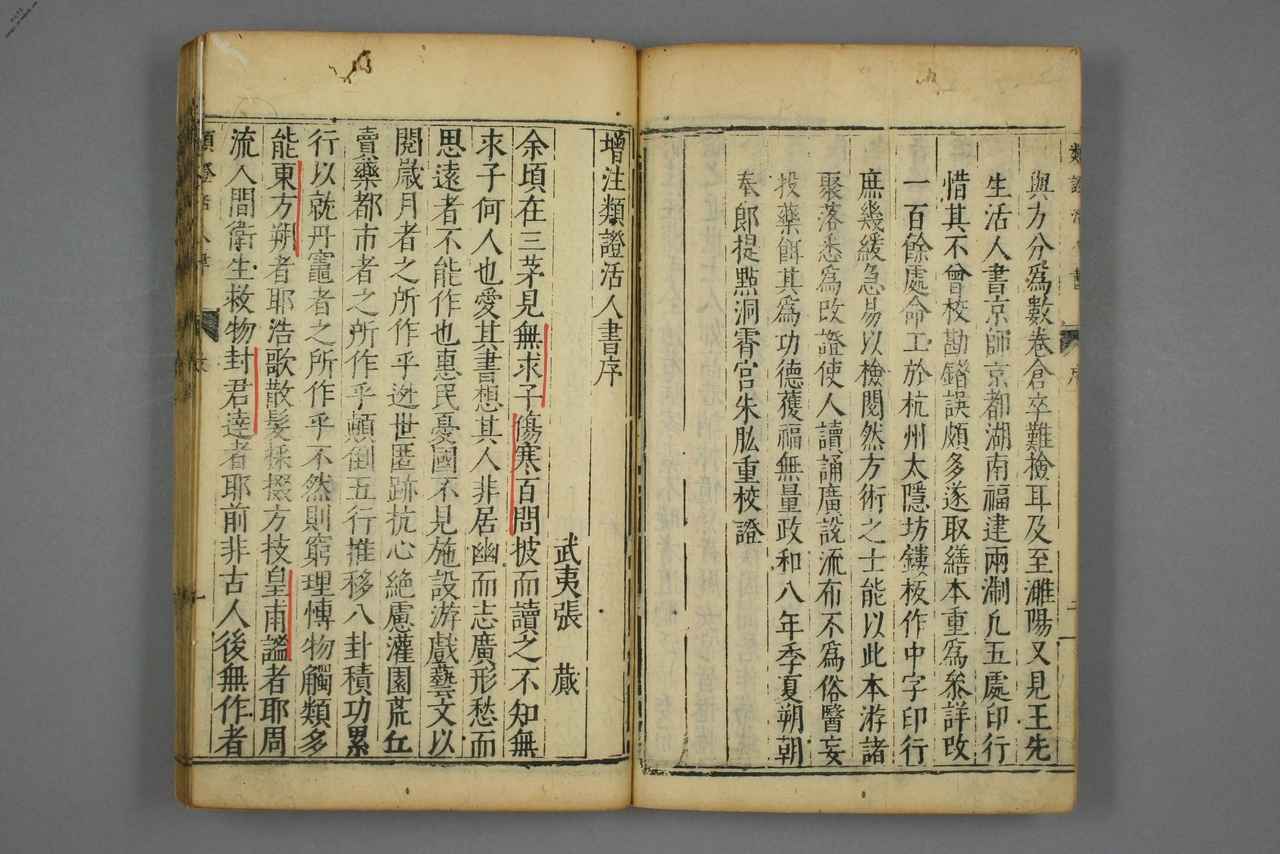 與方分爲數卷倉卒難檢耳及至濉陽又見王先
生活人書京師京都湖南福建兩淛凢五處印行
惜其不曾校勘錯誤頗多遂取繕本重爲叅詳改
一百餘處命工於杭州太隱坊鏤板作中字印行
庶幾緩急易以檢閱然方術之士能以此本游諸
聚落悉爲改證使人讀誦廣說流布不爲俗醫妄
投藥餌其爲功德獲福無量政和八年季夏朔朝
奉郎提點洞霄宮朱肱重校證
增注類證活人書序
武夷張 蕆
余頃在三茅見無求子傷寒百問披而讀之不知無
求子何人也愛其書想其人非居幽而志廣形愁而
思遠者不能作也惠民憂國不見施設游戲藝文以
閱歲月者之所作乎迯世匿跡抗心絶慮灌園荒丘
賣藥都市者之所作乎顛倒五行推移八卦積功累
行以就丹竈者之所作乎不然則窮理博物觸類多
能東方朔者耶浩歌散髮採掇方技皇甫謐者耶周
流人間衛生救物封君達者耶前非古人後無作者